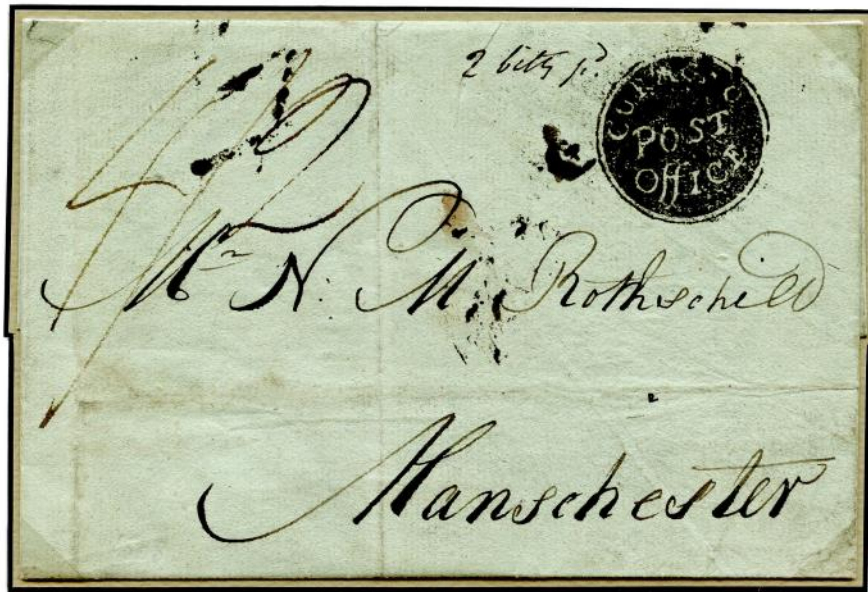 2 bitts pd.
CURAÇAO
POST
OffICE
Mr N. M. Rothschild
Manschester